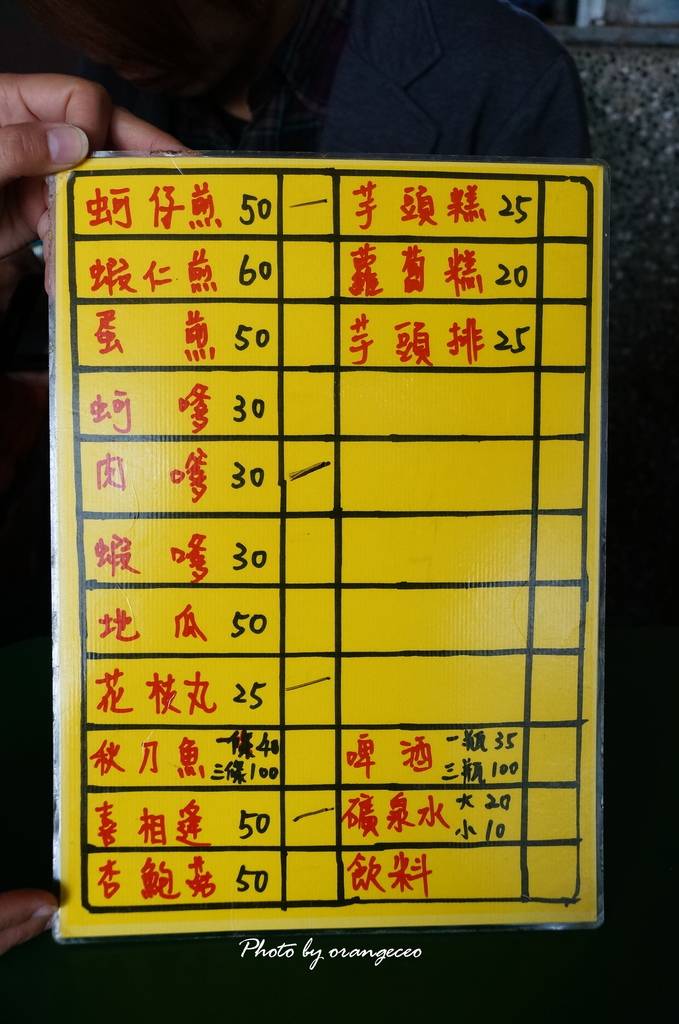 蚵仔煎 50 一 芋頭糕 25
蝦仁煎 60 蘿蔔糕 20
蛋煎 50 芋頭排 25
蚵嗲 30
肉嗲 30 一
蝦嗲 30
地瓜 50
花枝丸 25 一
秋刀魚 一條 40 三條 100 啤酒 一瓶 35 三瓶 100
喜相逢 50 一 礦泉水 大 20 小 10
杏鮑菇 50 飲料
Photo by orangeceo